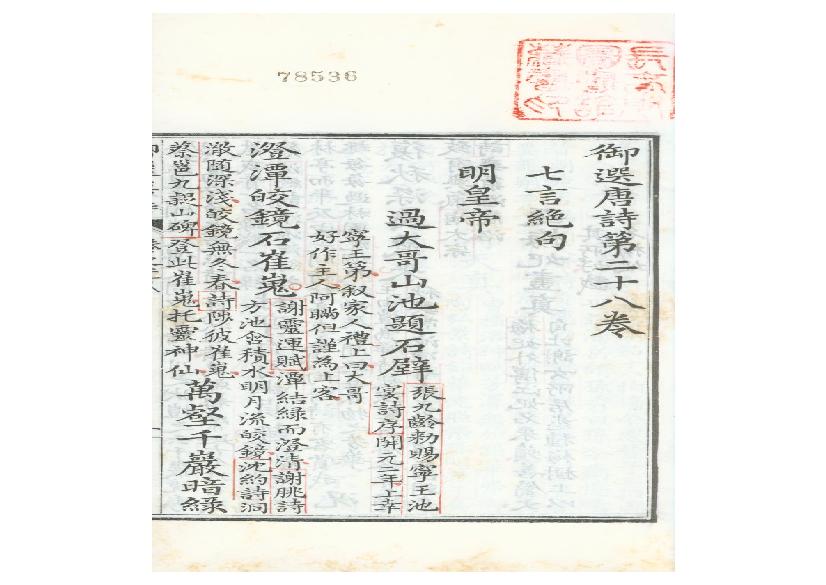 78536
御選唐詩第二十八卷
七言絕句
明皇帝
過大哥山池題石壁
張九齡勑賜寧王池
宴詩序開元二年上幸
寧王第叙家人禮上曰大哥
好作主人阿瞞但謹為上客
澄潭皎鏡石崔嵬
謝靈運賦潭結綠而澄清謝朓詩
方池含積水明月流皎鏡沈約詩洞
澈隨深淺皎鏡無冬春詩陟彼崔嵬
蔡邕九疑山碑登此崔嵬托靈神仙
萬壑千巖暗綠